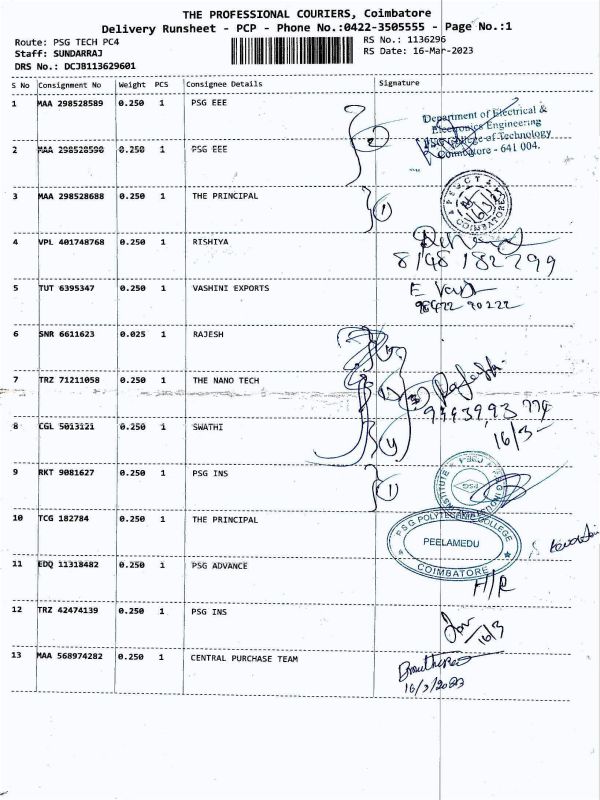 THE PROFESSIONAL COURIERS, Coimbatore
Delivery Runsheet - PCP - Phone No.:0422-3505555 - Page No.:1
Route: PSG TECH PC4
RS No.: 1136296
Staff: SUNDARRAJ
RS Date: 16-Mar-2023
DRS No.: DCJB113629601
S No Consignment No Weight PCS Consignee Details Signature
1 MAA 298528589 0.250 1 PSG EEE
Department of Electrical &
Electronics Engineering
PSG College of Technology
Coimbatore - 641 004.
2
2 MAA 298528590 0.250 1 PSG EEE
3 MAA 298528688 0.250 1 THE PRINCIPAL
1
COIMBATORE
4 VPL 401748768 0.250 1 RISHIYA
8148 182799
5 TUT 6395347 0.250 1 VASHINI EXPORTS
6 SNR 6611623 0.025 1 RAJESH
7 TRZ 71211058 0.250 1 THE NANO TECH
3
8 CGL 5013121 0.250 1 SWATHI
16/3-
9 RKT 9081627 0.250 1 PSG INS
1
PSG
10 TCG 182784 0.250 1 THE PRINCIPAL
PSG POLYTECHNIC COLLEGE
PEELAMEDU
COIMBATORE
11 EDQ 11318482 0.250 1 PSG ADVANCE
H/R
12 TRZ 42474139 0.250 1 PSG INS
16/3
13 MAA 568974282 0.250 1 CENTRAL PURCHASE TEAM
16/3/2023